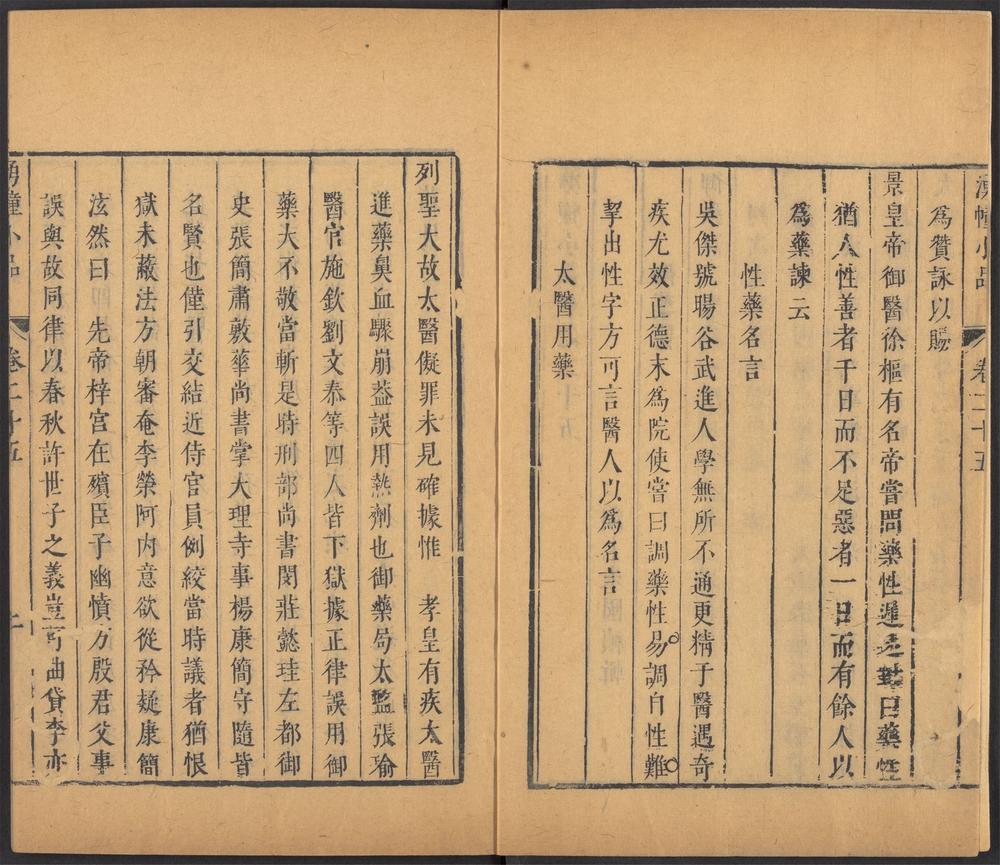 湧幢小品 卷二十五
為贊詠以賜
景皇帝御醫徐樞有名帝嘗問藥性遲速對曰藥性
猶人人性善者千日而不足惡者一日而有餘人以
為藥諫云
性藥名言
吳傑號暘谷武進人學無所不通更精于醫遇奇
疾尤效正德末為院使嘗曰調藥性易調自性難
挈出性字方可言醫人以為名言
太醫用藥
列聖大故太醫儗罪未見確據惟 孝皇有疾太醫
進藥鼻血驟崩葢誤用熱劑也御藥局太監張瑜
醫官施欽劉文泰等四人皆下獄據正律誤用御
藥大不敬當斬是時刑部尚書閔莊懿珪左都御
史張簡肅敷華尚書掌大理寺事楊康簡守隨皆
名賢也僅引交結近侍官員例絞當時議者猶恨
獄未蔽法方朝審奄李榮阿內意欲從矜疑康簡
泫然曰 先帝梓宮在殯臣子幽憤方殷君父事
誤與故同律以春秋許世子之義豈可曲貸李亦
湧幢小品 卷二十五 二